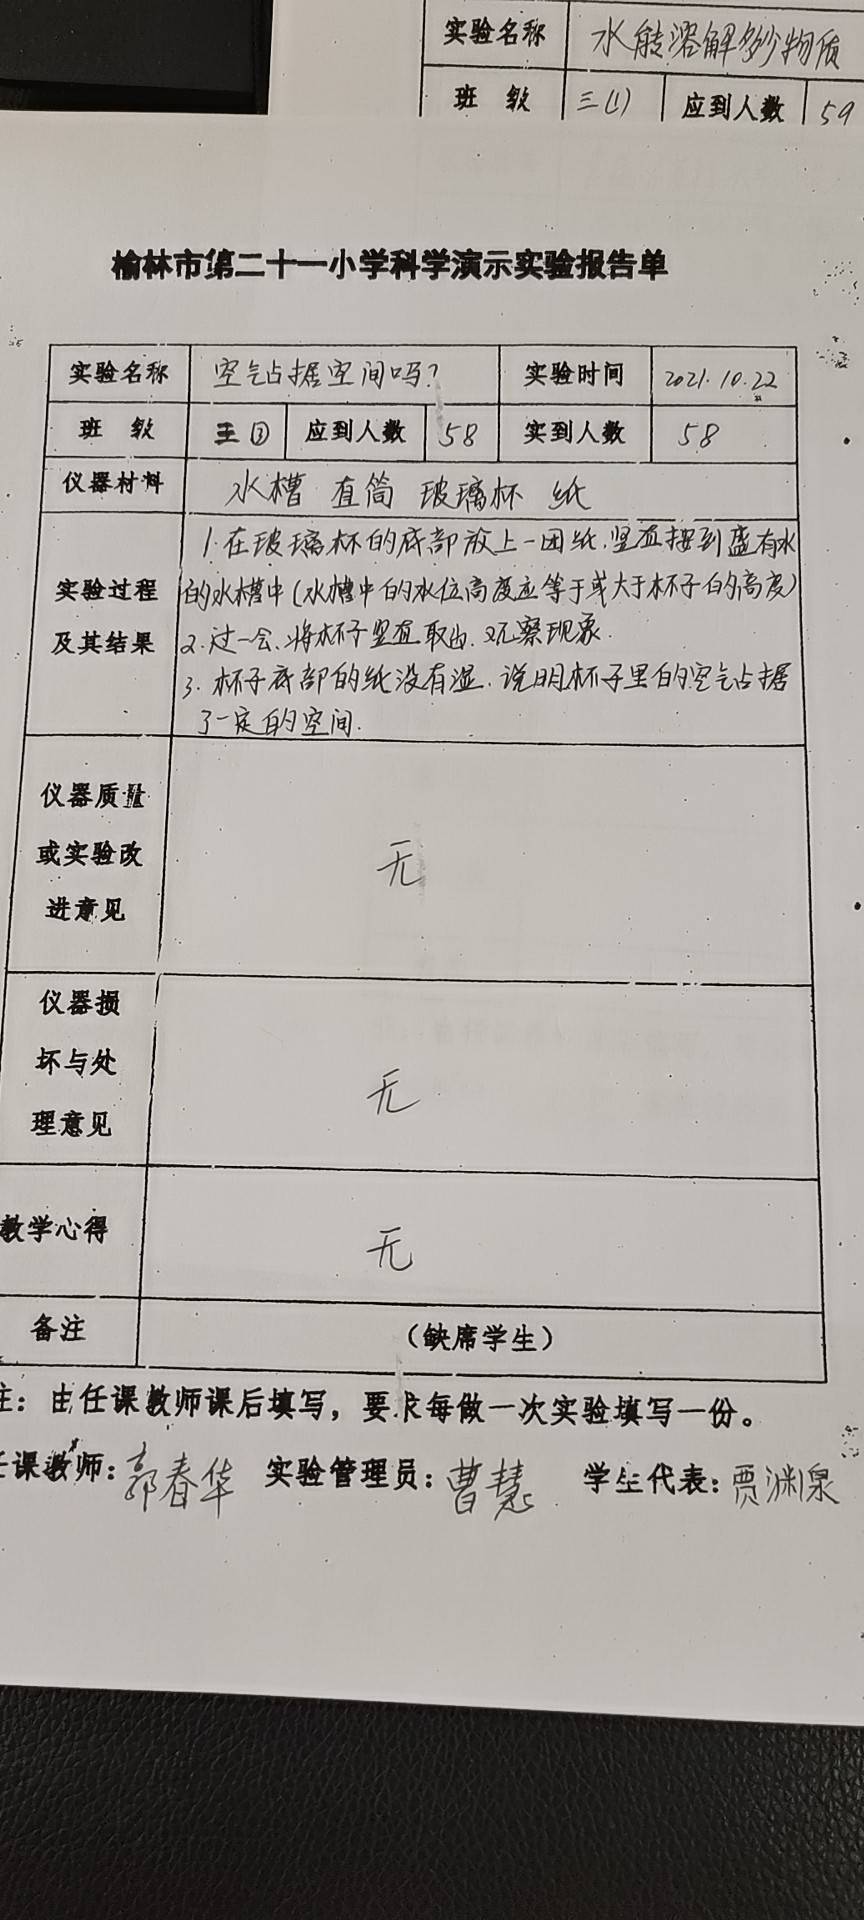 实验名称 水能溶解多少物质
班 级 三(1) 应到人数 59
榆林市第二十一小学科学演示实验报告单
实验名称 空气占据空间吗? 实验时间 2021.10.22
班 级 三③ 应到人数 58 实到人数 58
仪器材料 水槽 直筒 玻璃杯 纸
实验过程及其结果
1.在玻璃杯的底部放上一团纸.竖直按到盛有水
的水槽中(水槽中的水位高度应等于或大于杯子的高度)
2.过一会、将杯子竖直取出.观察现象.
3.杯子底部的纸没有湿.说明杯子里的空气占据
了一定的空间.
仪器质量
或实验改
进意见
无
仪器损
坏与处
理意见
无
教学心得 无
备注 (缺席学生)
注：由任课教师课后填写，要求每做一次实验填写一份。
任课教师：郭春华 实验管理员：曹慧 学生代表：贾渊泉